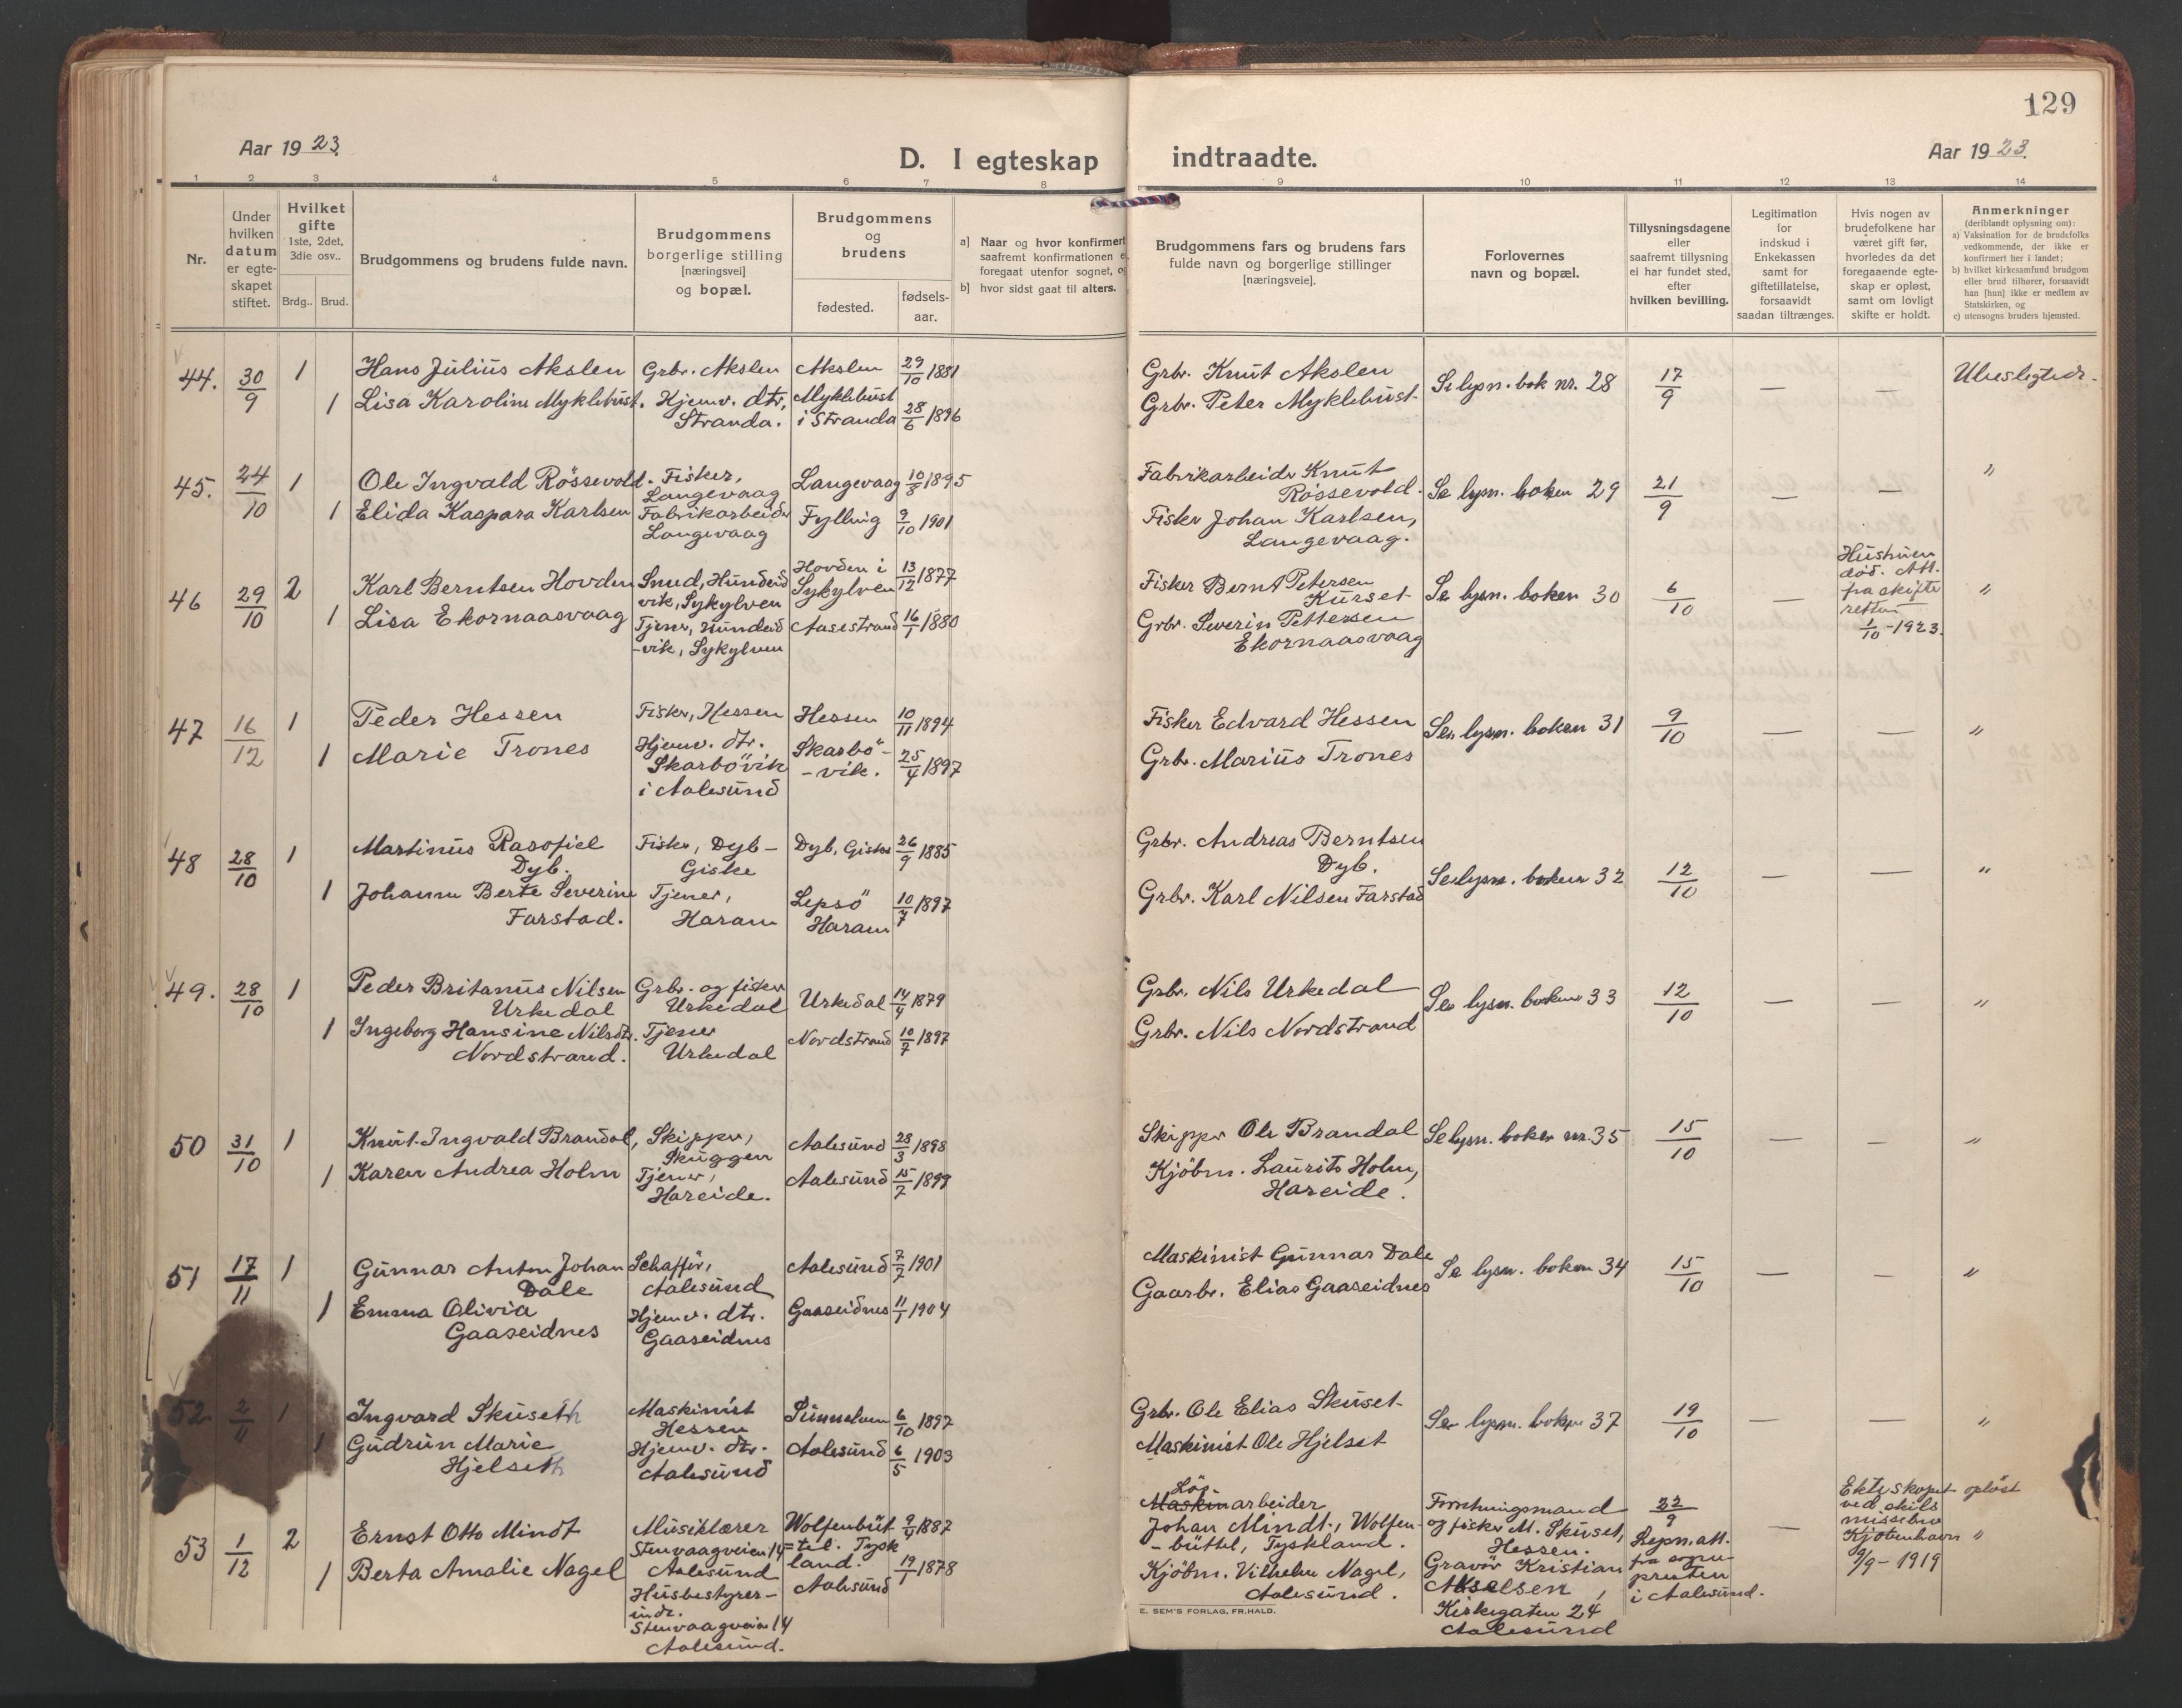 129
Aar 1923.
D. I egteskap indtraadte.
Aar 1923.
1 2 3 4 5 6 7 8 9 10 11 12 13 14
Nr.
Under hvilken datum er egte-skapet stiftet.
Hvilket gifte 1ste, 2det, 3die osv..
Brdg.. Brud.
Brudgommens og brudens fulde navn.
Brudgommens borgerlige stilling [næringsvei] og bopæl.
Brudgommens og brudens
fødested.
fødsels-aar.
a] Naar og hvor konfirmert
saafremt konfirmationen e
foregaat utenfor sognet, og
b] hvor sidst gaat til alters.
Brudgommens fars og brudens fars
fulde navn og borgerlige stillinger
[næringsveie].
Forlovernes
navn og bopæl.
Tillysningsdagene
eller
saafremt tillysning
ei har fundet sted,
efter
hvilken bevilling.
Legitimation
for
indskud i
Enkekassen
samt for
giftetillatelse,
forsaavidt
saadan tiltrænges.
Hvis nogen av
brudefolkene har
været gift før,
hvorledes da det
foregaaende egte-
skap er opløst,
samt om lovligt
skifte er holdt.
Anmerkninger
(deriblandt oplysning om):
a) Vaksination for de brudefolks
vedkommende, der ikke er
konfirmert her i landet;
b) hvilket kirkesamfund brudgom
eller brud tilhører, forsaavidt
han [hun] ikke er medlem av
Statskirken, og
c) utensogns bruders hjemsted.
44. 30/9 1 Hans Julius Akslen Grbr. Akslen Akslen 29/10 1881
1 Lisa Karoline Myklebust. Hjemv. dtr, Stranda. Myklebust i Stranda 28/6 1896
Grbr. Knut Akslen
Grbr. Peter Myklebust
Se lysn. bok nr. 28 17/9 — — Ubeslegtede.
45. 24/10 1 Ole Ingvald Rössevold. Fisker, Langevaag Langevaag 10/8 1895
1 Elida Kaspara Karlsen Fabrikarbeider Langevaag Fylling 9/10 1901
Fabrikarbeider Knut
Rössevold.
Fisker Johan Karlsen,
Langevaag.
Se lysn. boken 29 21/9 — — "
46 29/10 2 Karl Berntsen Hovden Smed, Hundeid
vik, Sykylven Hovden i Sykylven 13/12 1877
1 Lisa Ekornaasvaag Tjener, Hundeid
-vik, Sykylven Aasestrand 16/1 1880
Fisker Bernt Petersen
Kurset
Grbr. Severin Pettersen
Ekornaasvaag
Se lysn. boken 30 6/10 —
Hustruen
död. Att.
fra skifte
retten
1/10-1923. "
47 16/12 1 Peder Hessen Fisker, Hessen Hessen 10/11 1894
1 Marie Trones Hjemv. dtr.
Skarbövik
i Aalesund Skarbö-
-vik. 25/4 1897
Fisker Edvard Hessen
Grbr. Marius Trones
Se lysn. boken 31 9/10 — — "
48 28/10 1 Martinus Rasofiel
Dyb. Fisker, Dyb-
Giske Dyb, Giske 26/9 1885
1 Johanne Berte Severine
Farstad. Tjener,
Haram Lepsö
Haram 10/7 1897
Grbr. Andreas Berntsen
Dyb.
Grbr. Karl Nilsen Farstad
Se lysn. boken 32 12/10 — — "
49. 28/10 1 Peder Britanus Nilsen
Urkedal Grbr. og fisker
Urkedal Urkedal 14/4 1879
1 Ingeborg Hansine Nilsdtr.
Nordstrand. Tjener
Urkedal Nordstrand 10/7 1897
Grbr. Nils Urkedal
Grbr. Nils Nordstrand
Se lysn. boken 33 12/10 — — "
50 31/10 1 Knut Ingvald Brandal, Skipper,
Skuggen Aalesund 28/3 1898
1 Karen Andrea Holm Tjener,
Hareide. Aalesund 15/7 1899
Skipper Ole Brandal
Kjöbm. Laurits Holm,
Hareide.
Se lysn. boken nr. 35 15/10 — — "
51 17/11 1 Gunnar Anton Johan
Dale Schafför,
Aalesund Aalesund 7/7 1901
1 Emma Olivia
Gaaseidnes Hjemv. dtr.
Gaaseidnes Gaaseidnes 11/1 1904
Maskinist Gunnar Dale
Gaarbr. Elias Gaaseidnes
Se lysn. boken 34 15/10 — — "
52. 2/11 1 Ingvard Skuseth Maskinist
Hessen Sunnelven 6/10 1897
1 Gudrun Marie
Hjelseth Hjemv. dtr.
Aalesund Aalesund 6/5 1903
Grbr. Ole Elias Skuset
Maskinist Ole Hjelset
Se lysn. boken 37 19/10 — — "
53 1/12 2 Ernst Otto Mindt Musiklærer
Stenvaagveien 14
Aalesund Wolfenbüt
=tel. Tysk
land. 9/4 1887
1 Berta Amalie Nagel Husbestyrer-
inde.
Stenvaagveien 14
Aalesund. Aalesund 19/1 1878
Lös
Maskinarbeider
Johan Mindt, Wolfen-
-büttel, Tyskland.
Kjöbm. Vilhelm Nagel,
Aalesund.
Forretningsmand
og fisker M. Skuset,
Hessen.
Gravör Kristian
Akselsen,
Kirkegaten 24
Aalesund
22/9
Lysn. att.
fra sogne-
presten
i Aalesund.
—
Ekteskapet oplöst
ved skils
missebrev
Kjöbenhavn
9/9-1919 "
E. SEM'S FORLAG, FR.HALD.